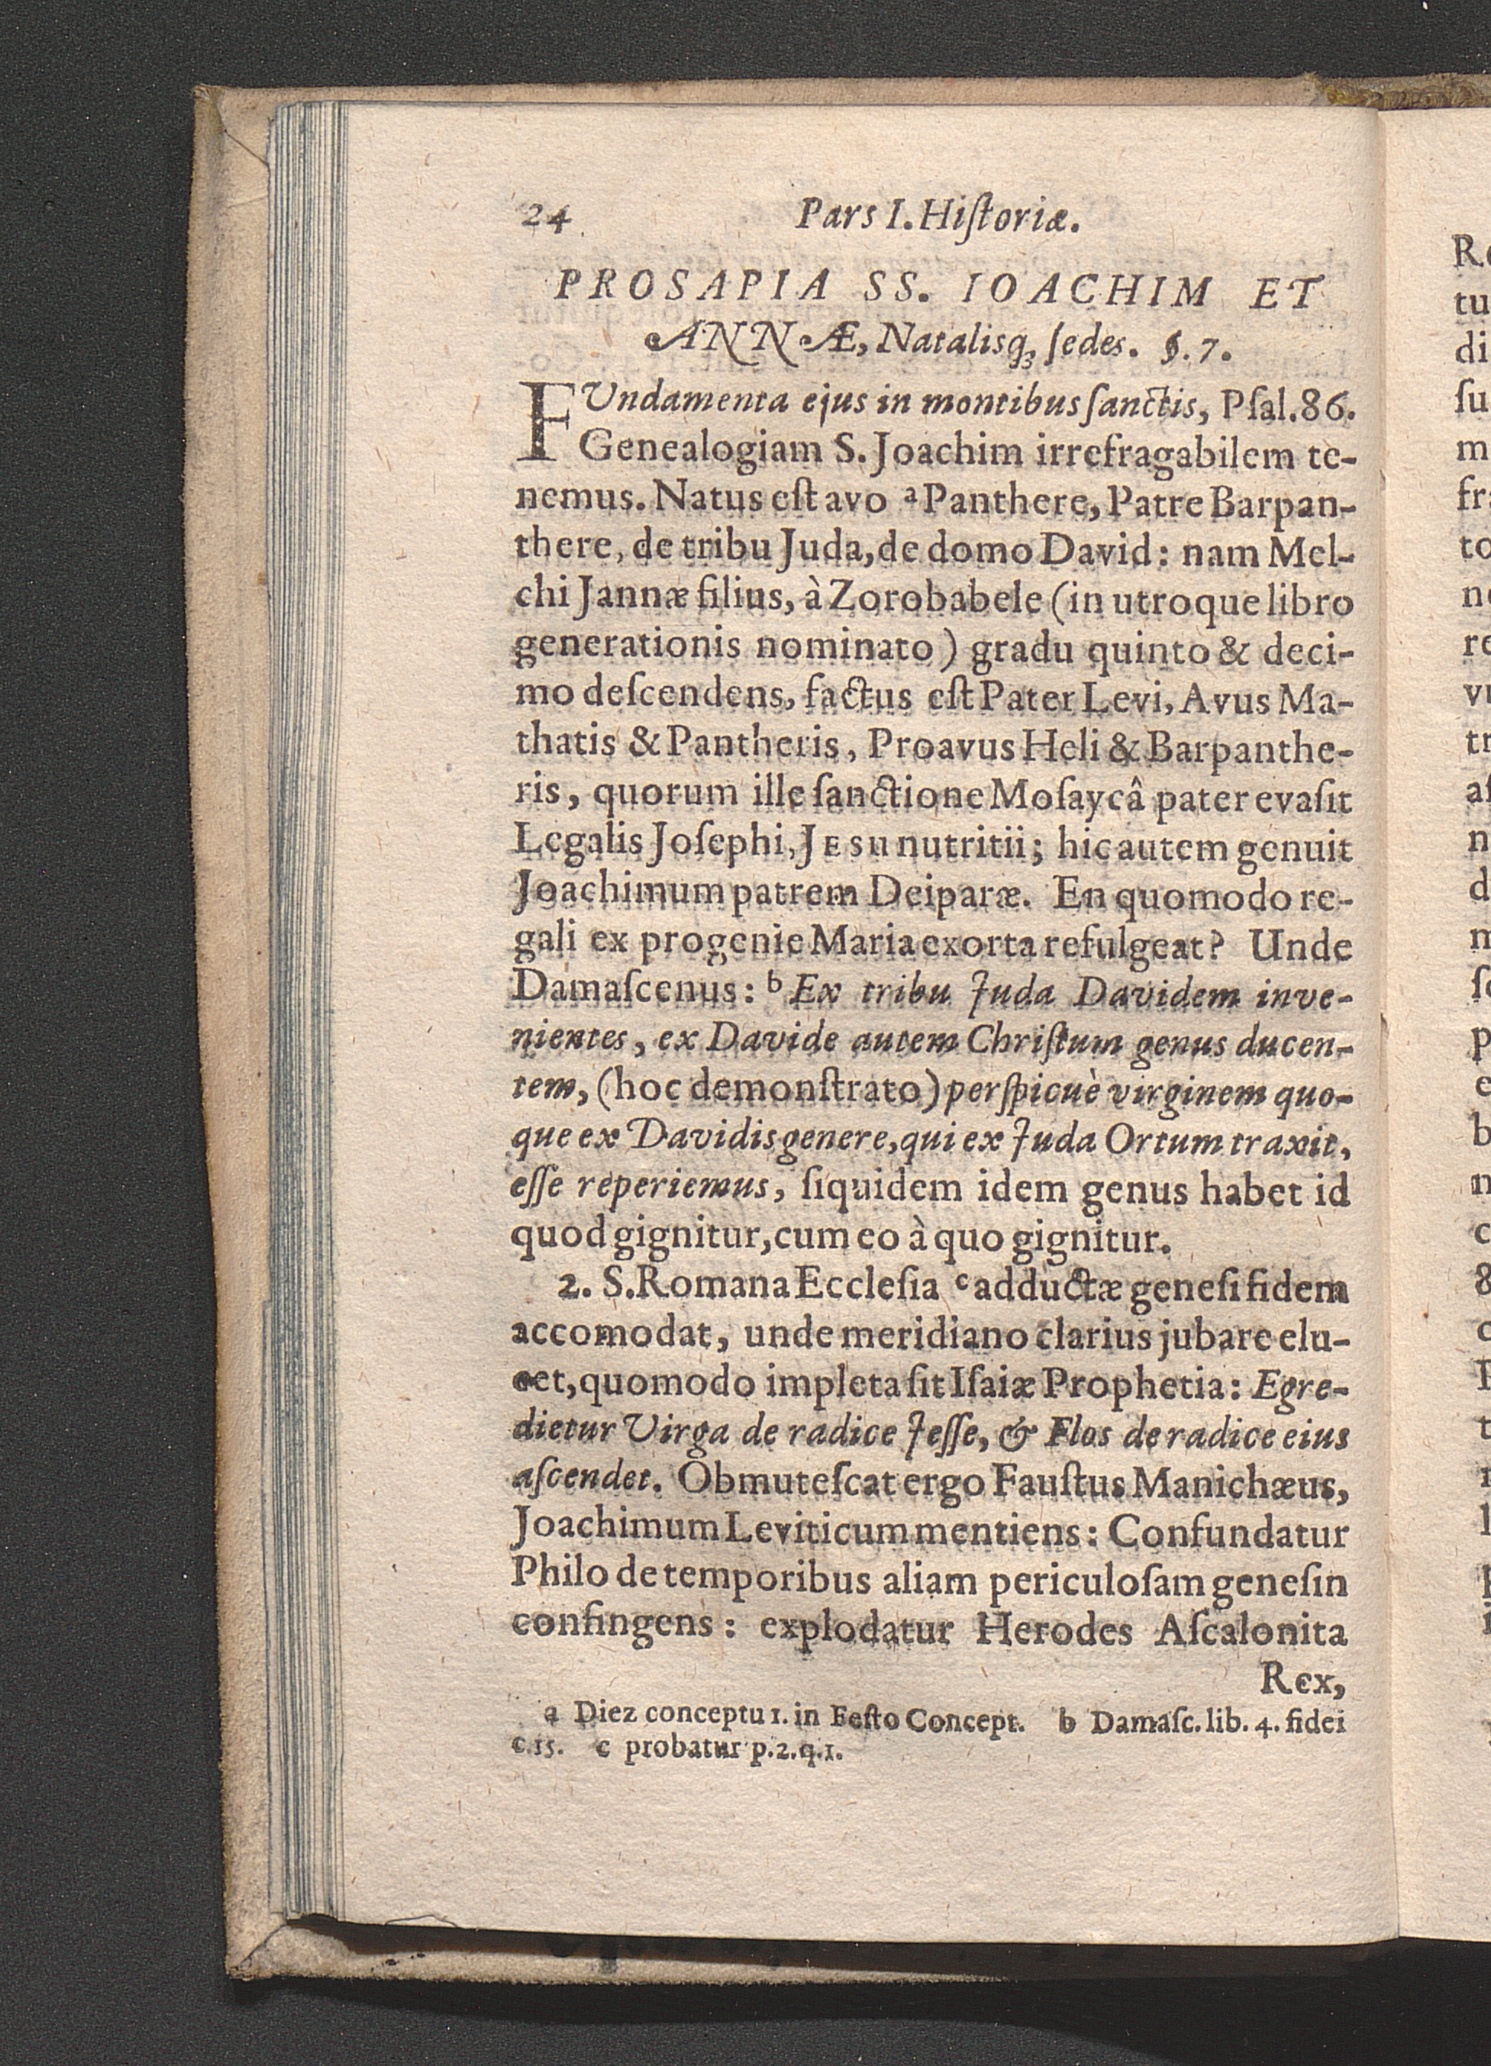 24 Pars I. Hiſtoriæ.
PROSAPIA SS. IOACHIM ET
ANNÆ, Natalisq́; ſedes. §. 7.
FUndamenta ejus in montibus ſanctis, Pſal. 86.
Genealogiam S. Joachim irrefragabilem te-
nemus. Natus eſt avo ᵃ Panthere, Patre Barpan-
there, de tribu Juda, de domo David: nam Mel-
chi Jannæ filius, à Zorobabele (in utroque libro
generationis nominato) gradu quinto & deci-
mo deſcendens, factus eſt Pater Levi, Avus Ma-
thatis & Pantheris, Proavus Heli & Barpanthe-
ris, quorum ille ſanctione Moſaycâ pater evaſit
Legalis Joſephi, JEsu nutritii; hic autem genuit
Joachimum patrem Deiparæ. En quomodo re-
gali ex progenie Maria exorta refulgeat? Unde
Damaſcenus: ᵇ Ex tribu Juda Davidem inve-
nientes, ex Davide autem Chriſtum genus ducen-
tem, (hoc demonſtrato) perſpicuè virginem quo-
que ex Davidis genere, qui ex Juda Ortum traxit,
eſſe reperiemus, ſiquidem idem genus habet id
quod gignitur, cum eo à quo gignitur.
2. S. Romana Eccleſia ᶜ adductæ geneſi fidem
accomodat, unde meridiano clarius jubare elu-
cet, quomodo impleta ſit Iſaiæ Prophetia: Egre-
dietur Virga de radice Jeſſe, & Flos de radice eius
aſcendet. Obmuteſcat ergo Fauſtus Manichæus,
Joachimum Leviticum mentiens: Confundatur
Philo de temporibus aliam periculoſam geneſin
confingens: explodatur Herodes Aſcalonita
Rex,
a Diez conceptu 1. in Feſto Concept. b Damaſc. lib. 4. fidei
c. 15. c probatur p. 2. q. 1.